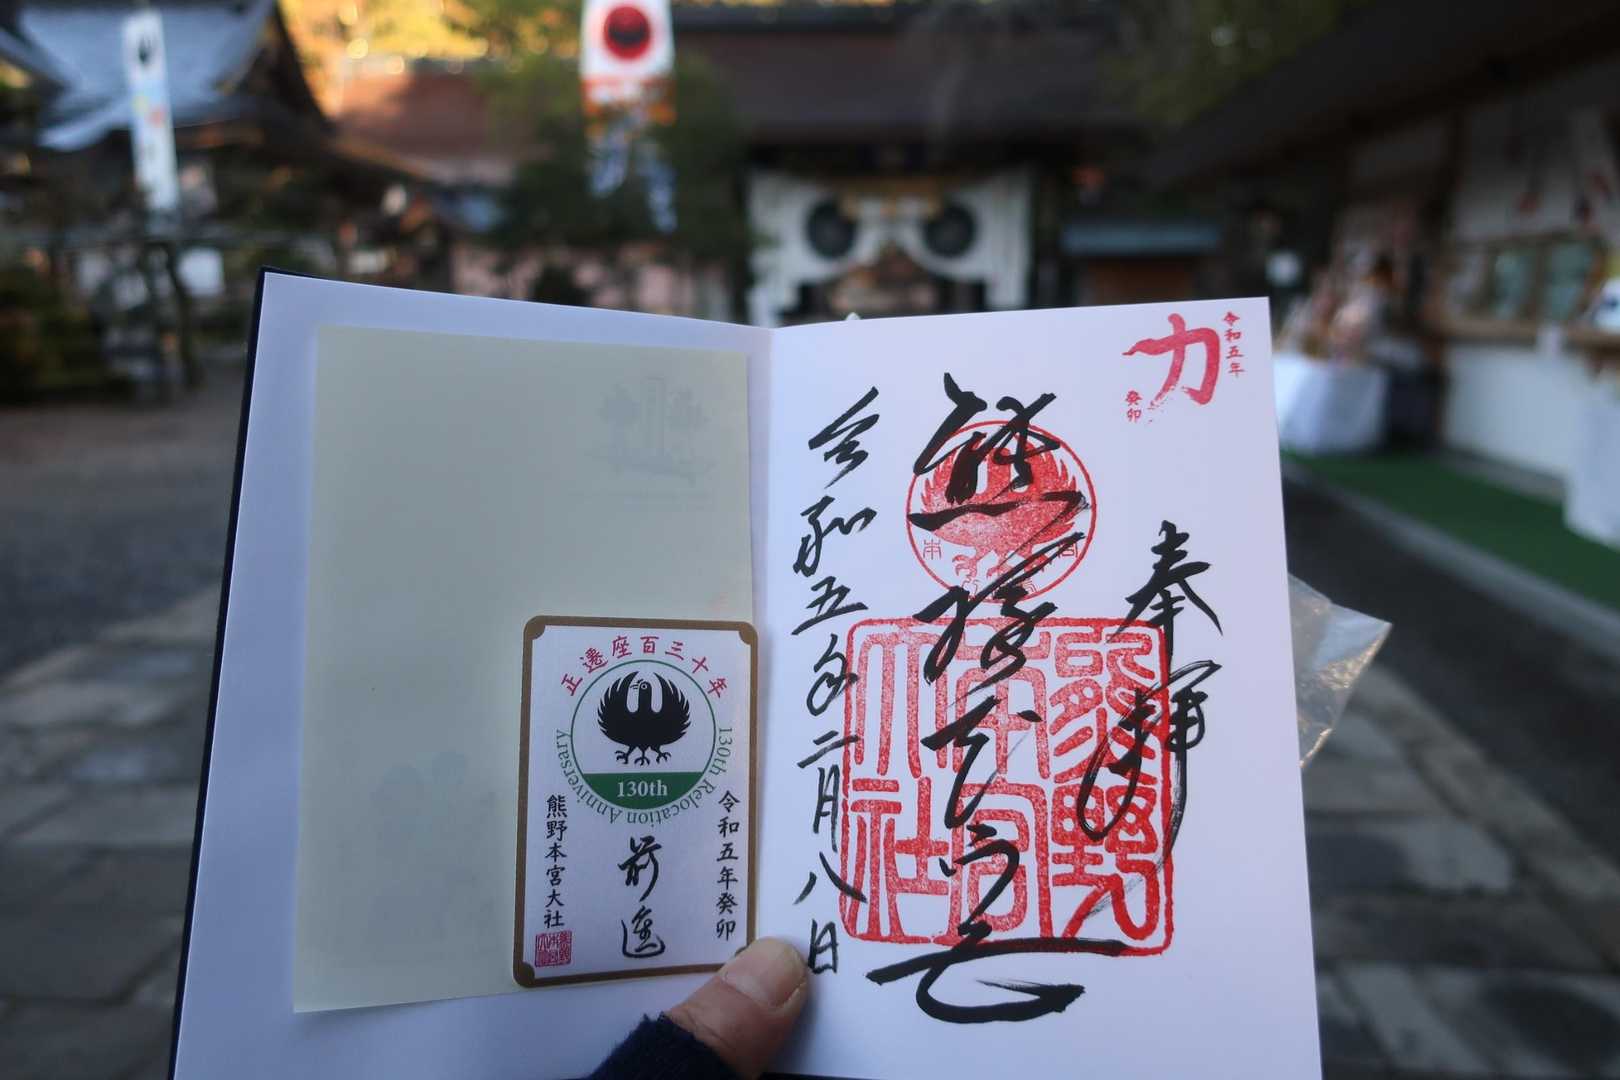 力
令和五年
癸卯
奉拝
熊
本宮
熊野
本宮
大社
令和五年二月八日
正遷座百三十年
130th Relocation Anniversary
130th
令和五年癸卯
前進
熊野本宮大社